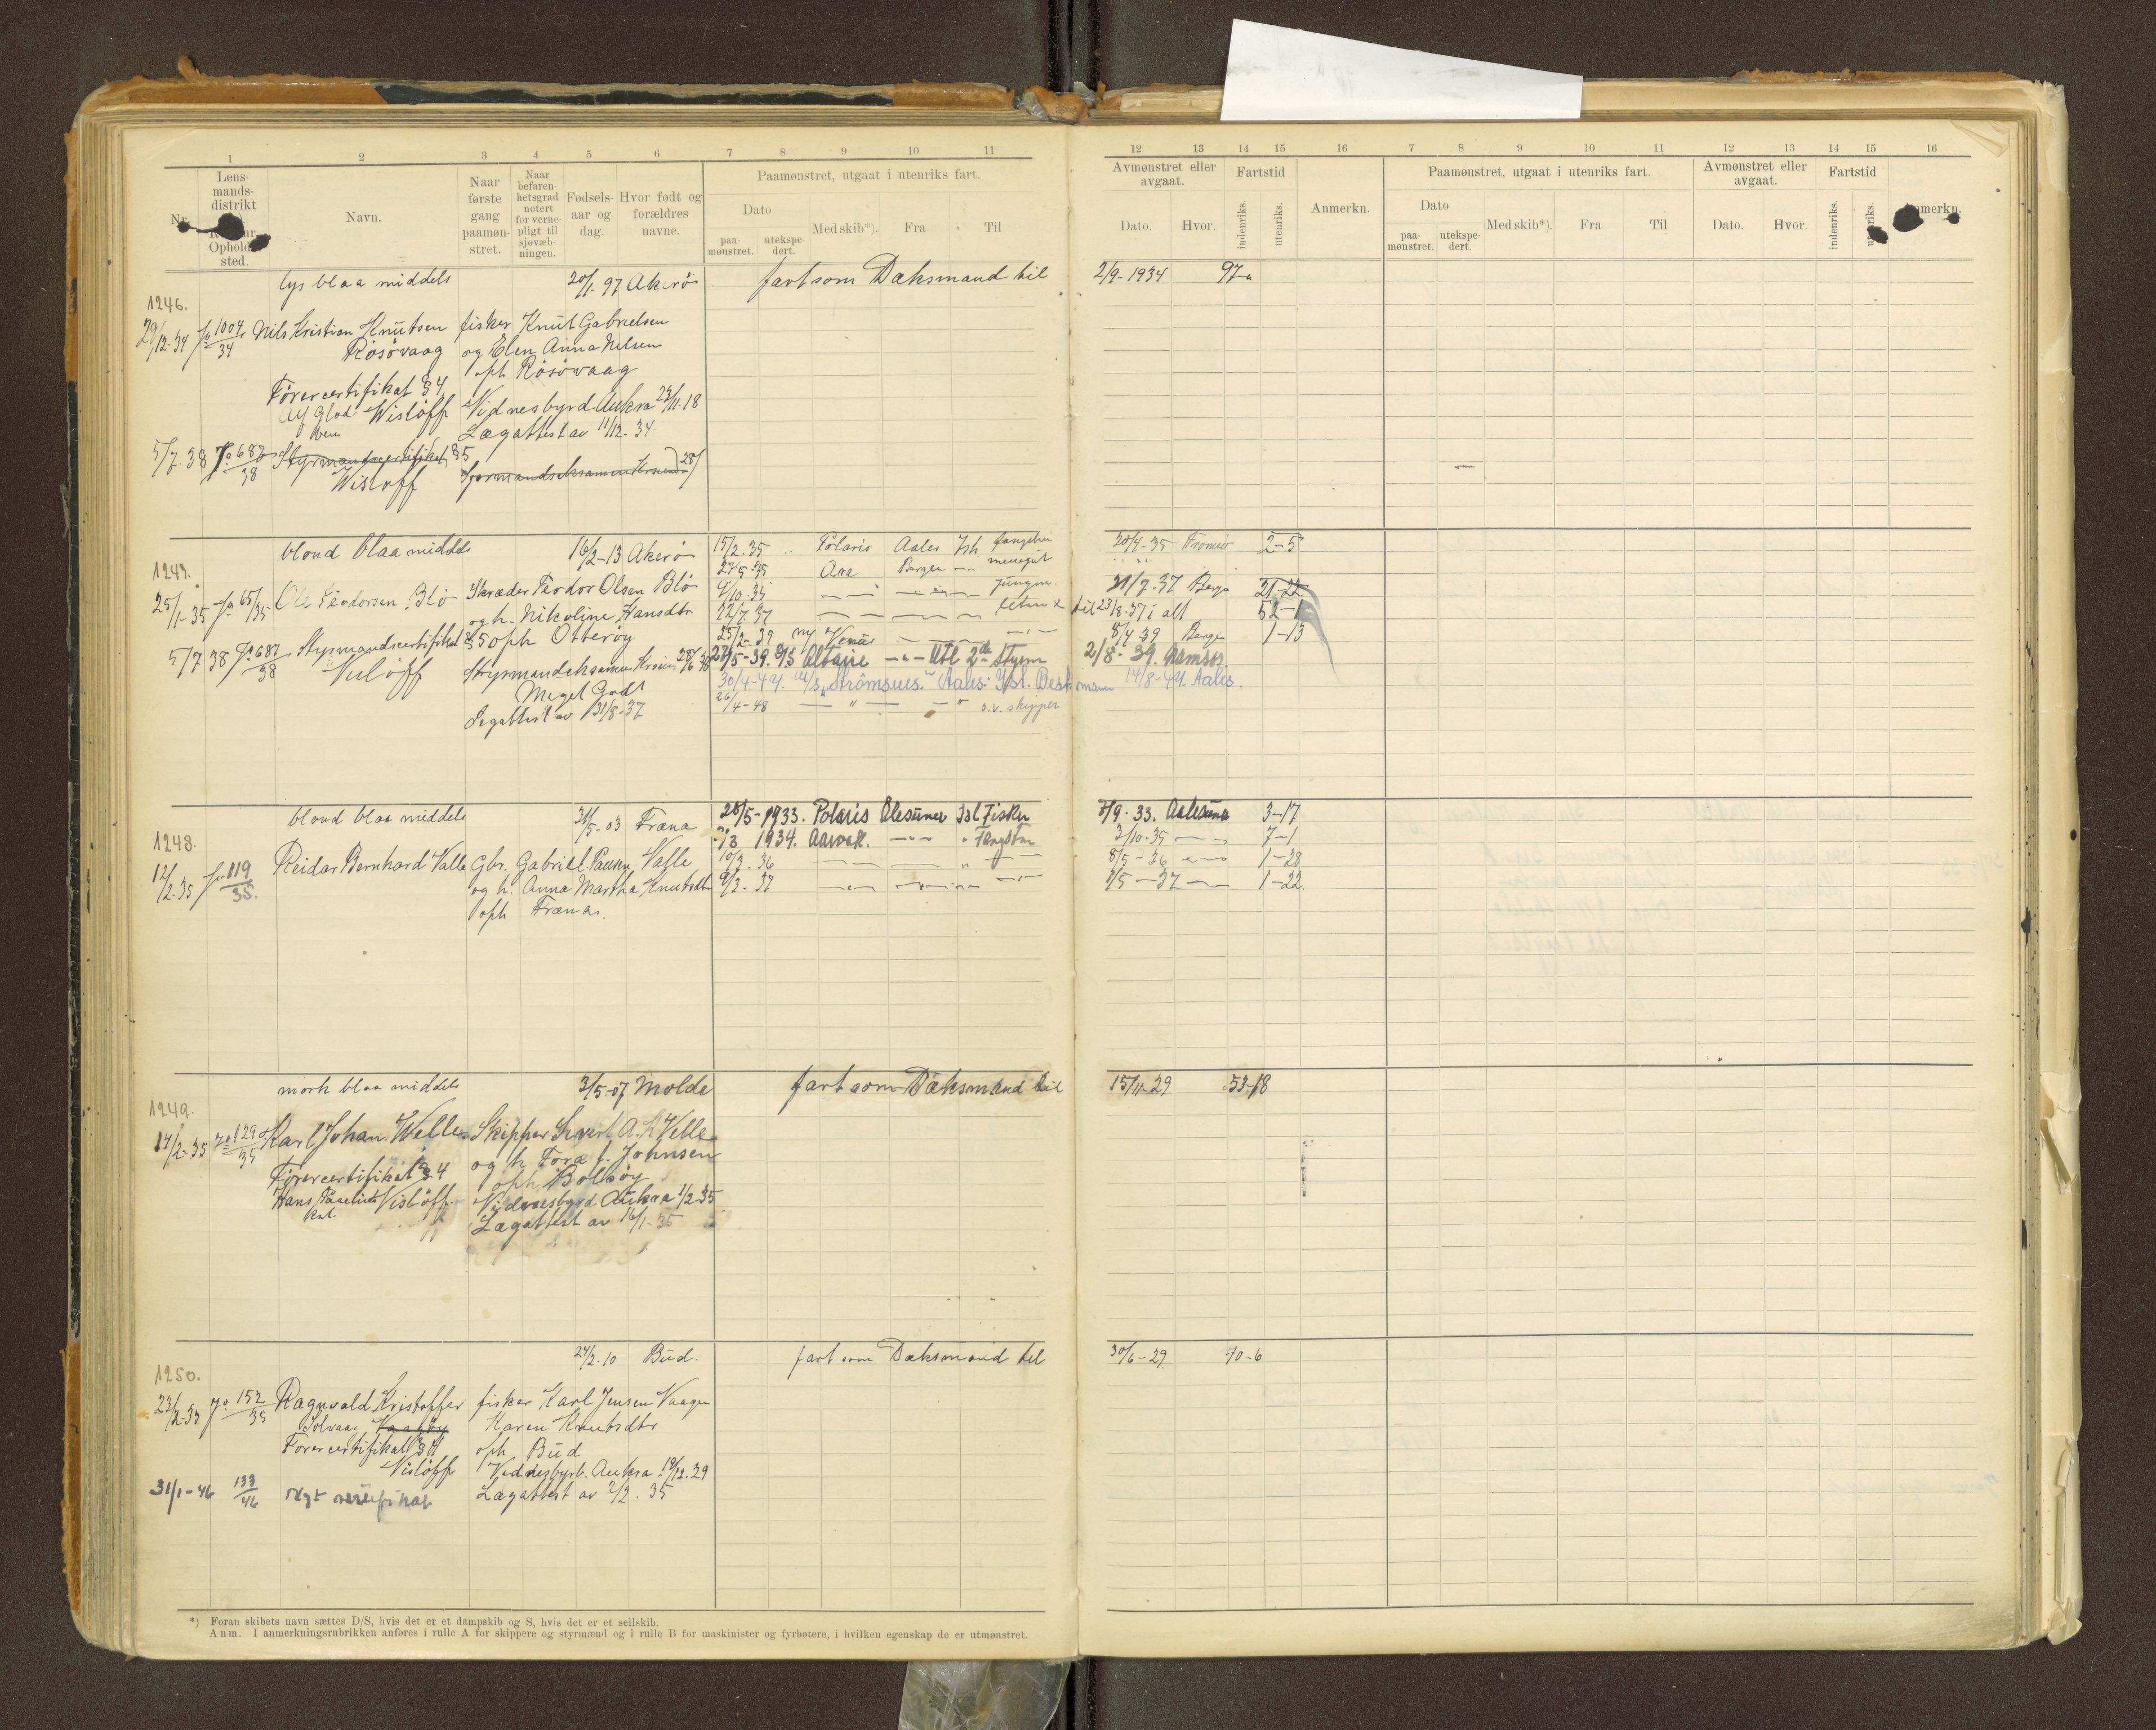 1 2 3 4 5 6 7 8 9 10 11
12 13 14 15 16 7 8 9 10 11 12 13 14 15 16
Nr.
Lens-
mands-
distrikt
Ophold-
sted.
Navn.
Naar
første
gang
paamøn-
stret.
Naar
befaren-
hetsgrad
notert
for verne-
pligt til
sjøvæb-
ningen.
Fødsels-
aar og
dag.
Hvor født og
forældres
navne.
Paamønstret, utgaat i utenriks fart.
Dato
paa-
mønstret.
utekspe-
dert.
Med skib*).
Fra
Til
Avmønstret eller
avgaat.
Dato.
Hvor.
Fartstid
indenriks.
utenriks.
Anmerkn.
Paamønstret, utgaat i utenriks fart.
Dato
paa-
mønstret.
utekspe-
dert.
Med skib*).
Fra
Til
Avmønstret eller
avgaat.
Dato.
Hvor.
Fartstid
indenriks.
lys blaa middels 20/1-97 Akerö fart som Dæksmand til 2/9-1934
1246.
29/12-34 1004/34 Nils Kristian Knutsen fisker Knut Gabrielsen
Rösövaag og Elen Anna Nelsen
oph Rösövaag
Førercertifikat § 4
Wislöff Vidnesbyrd Aukra 23/11-18
Lægattest av 11/12-34
5/7-38 687/38 Styrmandscertifikat § 5
Wislöff
blond blaa middels 16/2-13 Akerö 15/2-35 Polaris Aales Ish 20/4-35 Tromsö 2-5
1247.
Ara Bergen
25/1-35 65/35 Ole Teodorsen Blö Skræder Teodor Olsen Blö 9/10-35 Jungm. 21/7-37 Berge 21-22
og h. Nikoline Hansdtr 22/7-37 til 23/8-37 i alt 52-1
oph Otteröy 25/2-39 Venus 8/4 39 Bergen 1-13
5/7 38 687/38 Styrmandscertifikat § 5
Styrmandseksamen 28/6 38 27/5-39 D/S Altair Utl 2de Styrm 2/8-39.
Meget Godt 30/4-47. M/S "Strömsnes." Aales: Isl. Bestmann 14/8-47. Aales.
Legattest av 31/8-37 26/4-48 — " — s.v. skipper
blond blaa middels 31/5-03 Fræna 28/5-1933. Polaris Alesund Isl Fisker 8/9-33. Aalesund 3-17
1934. Aarvak. Fangstm 3/10-35 7-1
1248.
12/2-35 119/35. Reidar Bernhard Valle Gbr. Gabriel Paulsen Valle 10/3-36 8/5-36 1-28
og h. Anna Martha Knutsdtr 9/3-37 1/5-37 1-22
oph Fræna.
mørk blaa middels 3/5-07 Molde fart som Dæksmand til 15/11-29 53-18
1249.
14/2-35 129/35 Karl Johan Welle Skipper Sivert A. Velle
og h Tora f. Johnsen
oph Bolsöy
Førercertifikat § 4
Hans Vislöff Vidnesbyrd Aukra 1/2-35
Lægattest av 16/1-35
24/2-10 Bud. fart som Dæksmand til 30/6-29 70-6
1250.
23/2-35 152/35 Ragnvald Kristoffer fisker Karl Jensen Vaagen
Solvaag Karen Knutsdtr
Førercertifikat § 4 oph Bud
Vislöff Vidnesbyrd. Aukra 18/12-29
31/1-46 133/46 Nyt certifikat Lægattest av 2/2-35
*) Foran skibets navn sættes D/S, hvis det er et dampskib og S, hvis det er et seilskib.
Anm. I anmerkningsrubrikken anføres i rulle A for skippere og styrmænd og i rulle B for maskinister og fyrbøtere, i hvilken egenskap de er utmønstret.